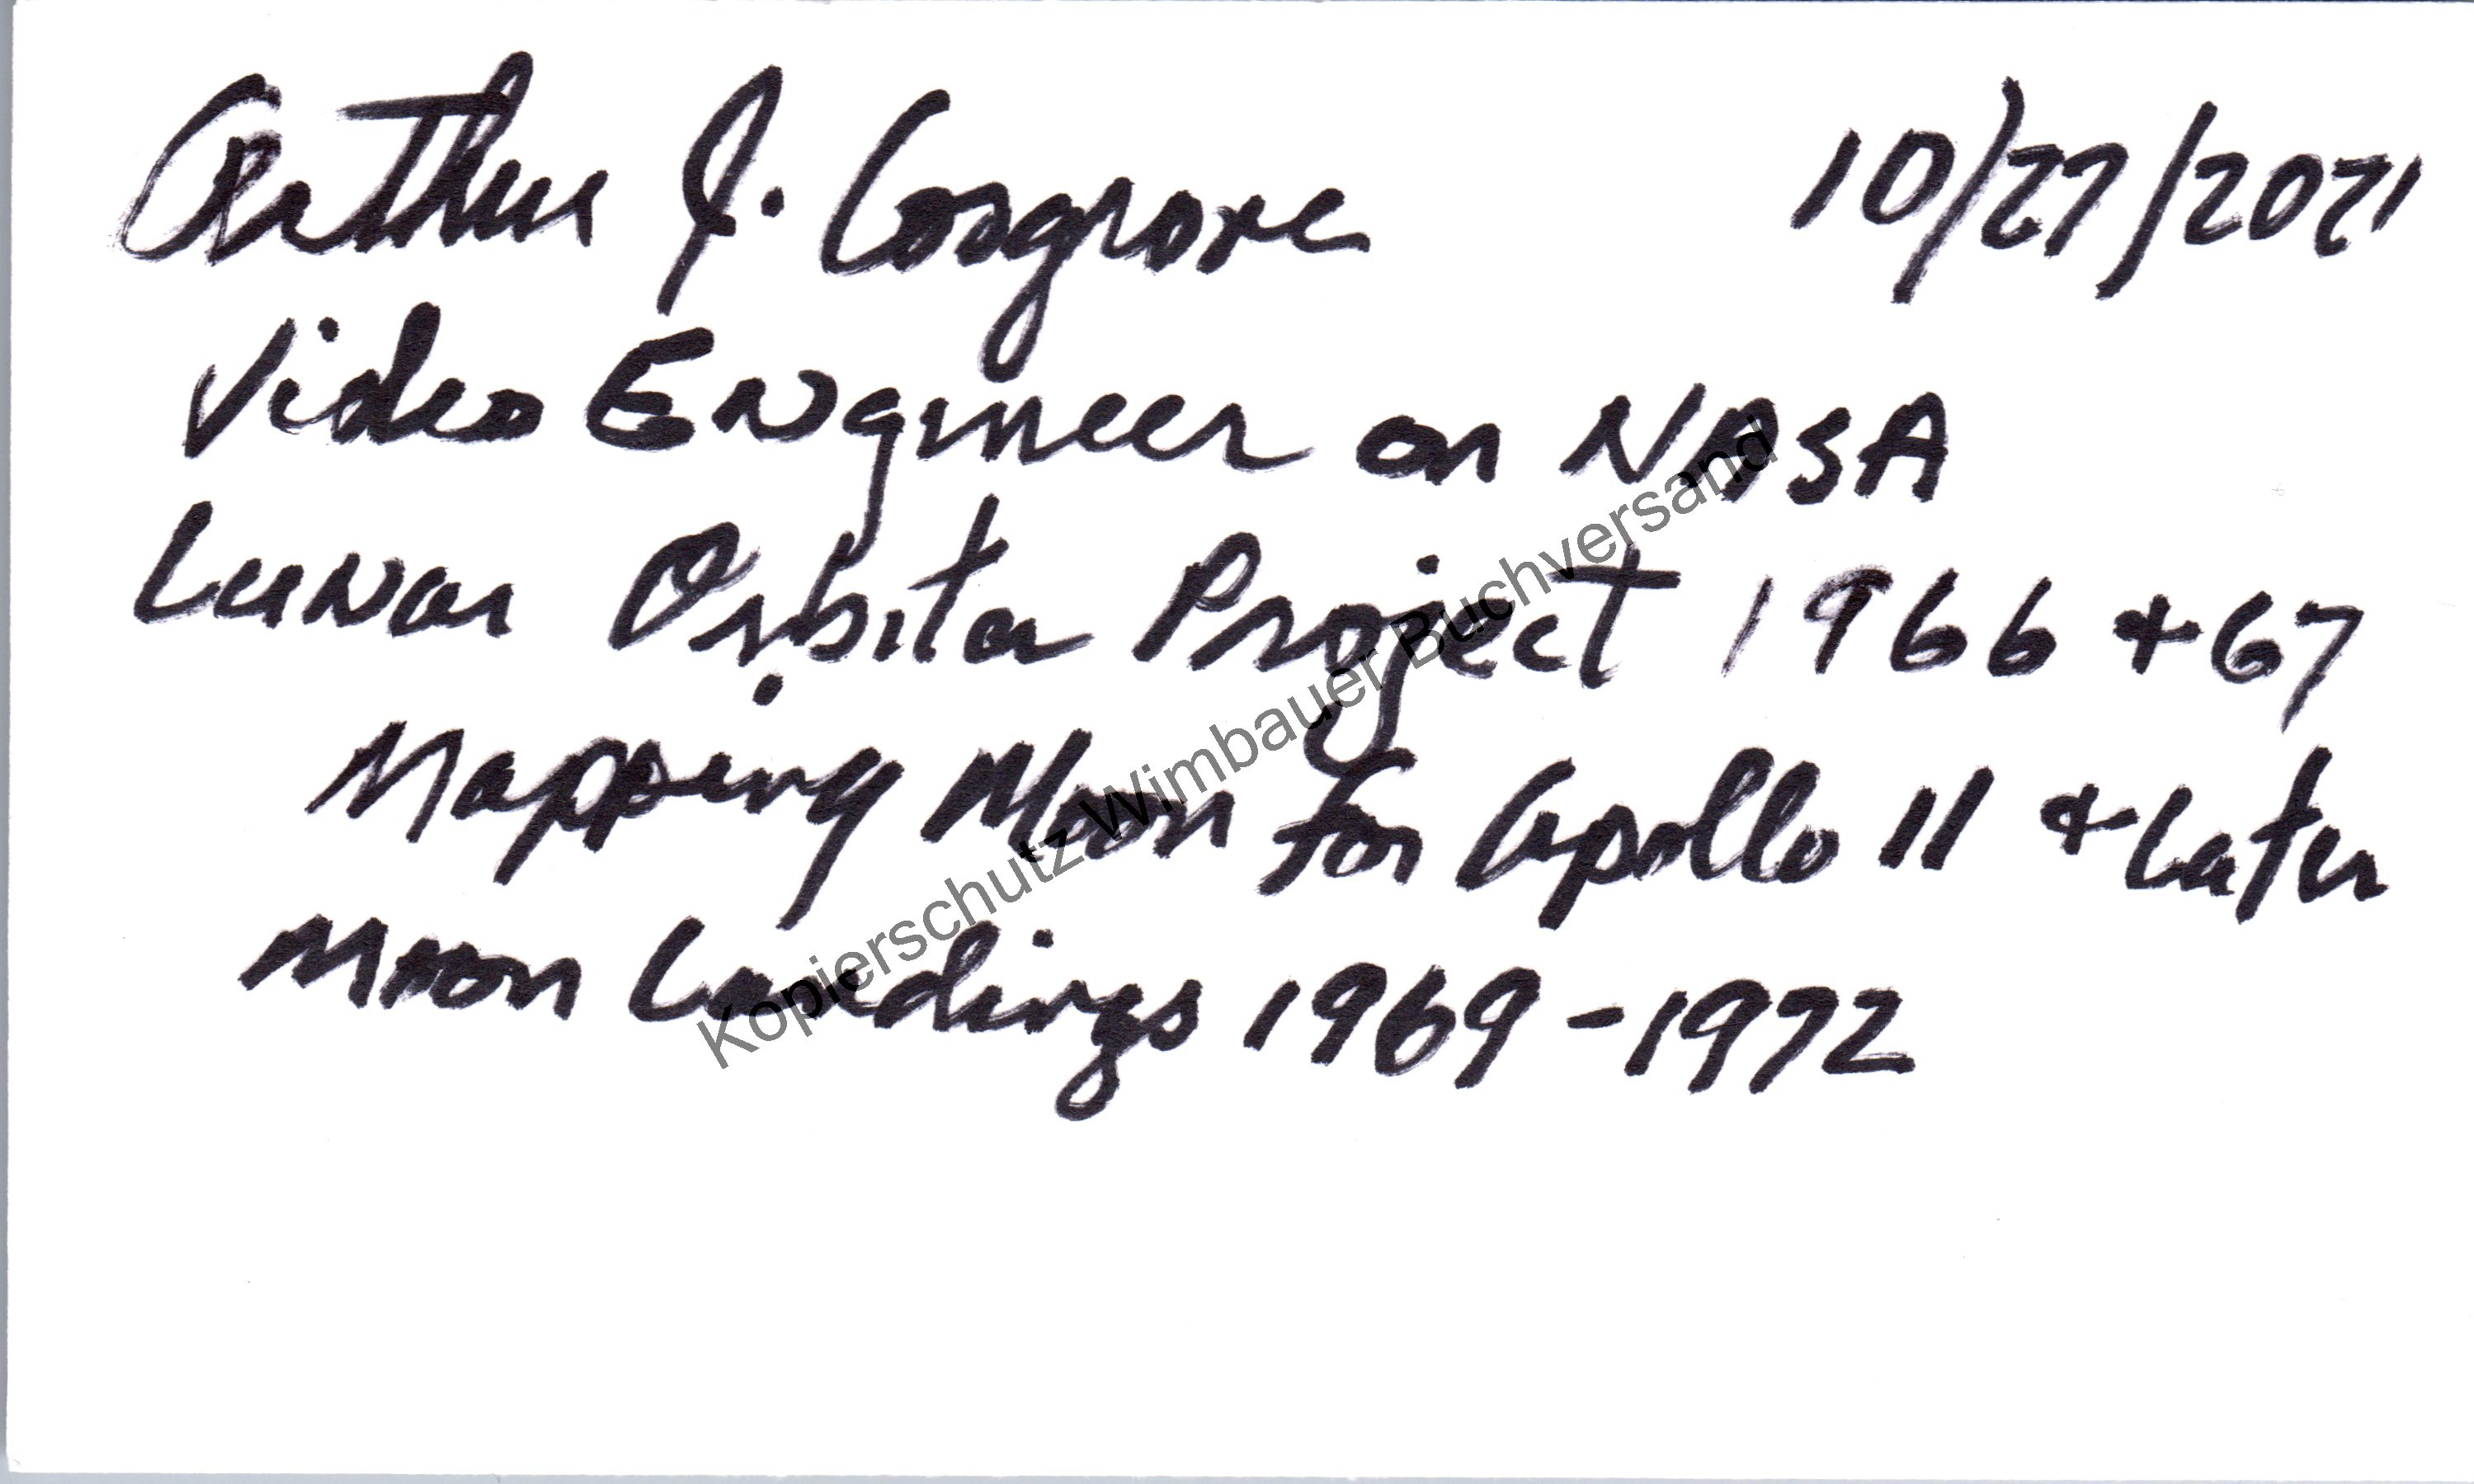 Arthur J. Cosgrove 10/27/2021
Video Engineer on NASA
Lunar Orbiter Project 1966 & 67
Mapping Moon for Apollo 11 & Later
Moon Landings 1969-1972
Kopierschutz Wimbauer Buchversand